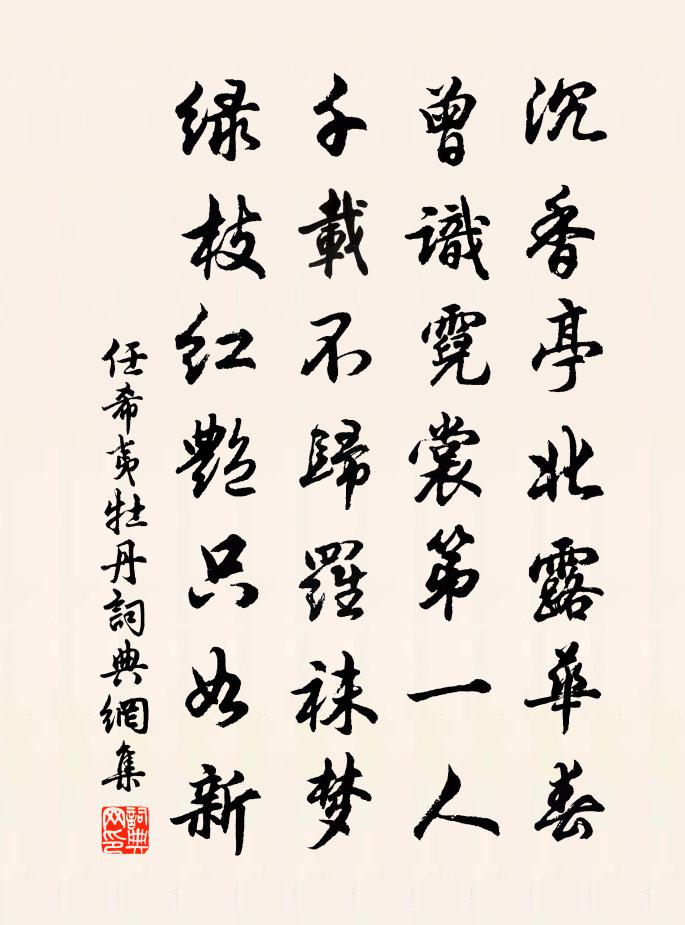 沉香亭北露華春
曾識霓裳第一人
千載不歸羅袜梦
绿枝红艷只如新
任希夷牡丹詞典網集
詞典网印